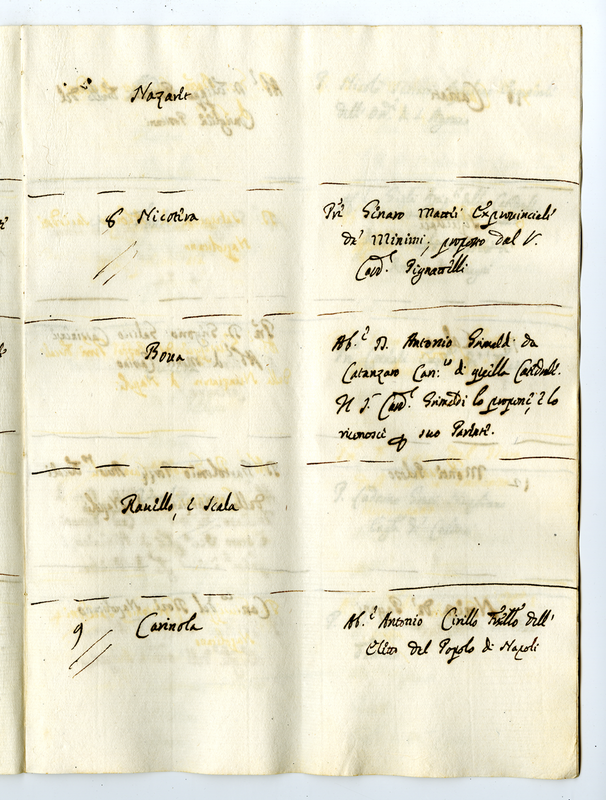 Nazaret
8 Nicotera
Pre Genaro Mattei Exprovinciale
de' Minimi, proposto dal V.
Card.l Pignattelli
Boua
Ab.e D. Antonio Grimaldi da
Catanzaro Can.co di quella Catedrale.
Il S. Card.l Grimaldi lo propone, e lo
riconosce p suo Parente.
Rauello, e Scala
9 Carinola
Ab.e Antonio Cirillo frẽllo dell'
Eletto del Popolo di Napoli